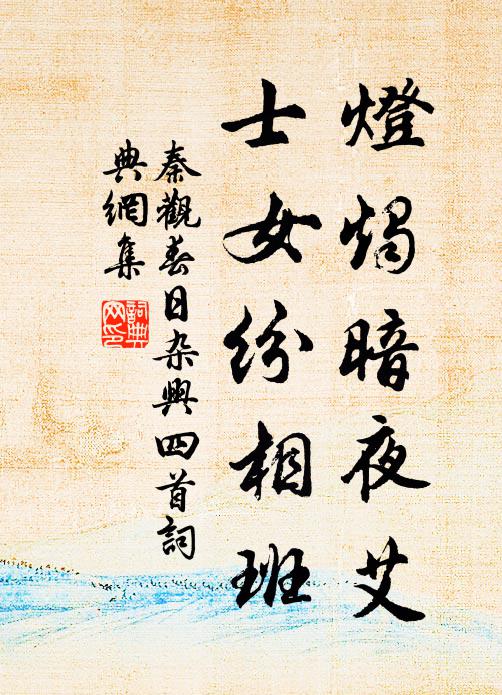 燈燭暗夜艾
士女紛相班
秦觀春日杂興四首詞
典網集
詞典网印